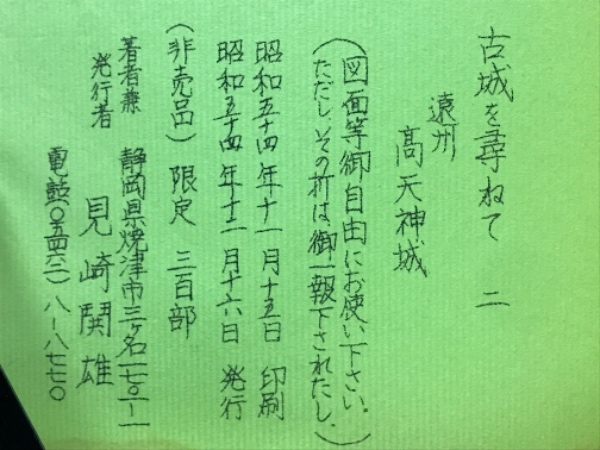 古城を尋ねて 二
遠州
高天神城
(図面等御自由にお使い下さい。
ただし、その折は御一報下されたし。)
昭和五十四年十一月十五日 印刷
昭和五十四年十二月十六日 発行
(非売品) 限定 三百部
著者兼
発行者
静岡県焼津市三ヶ名一七〇一ー一
見崎鬨雄
電話〇五四六二) 八ー八七七〇